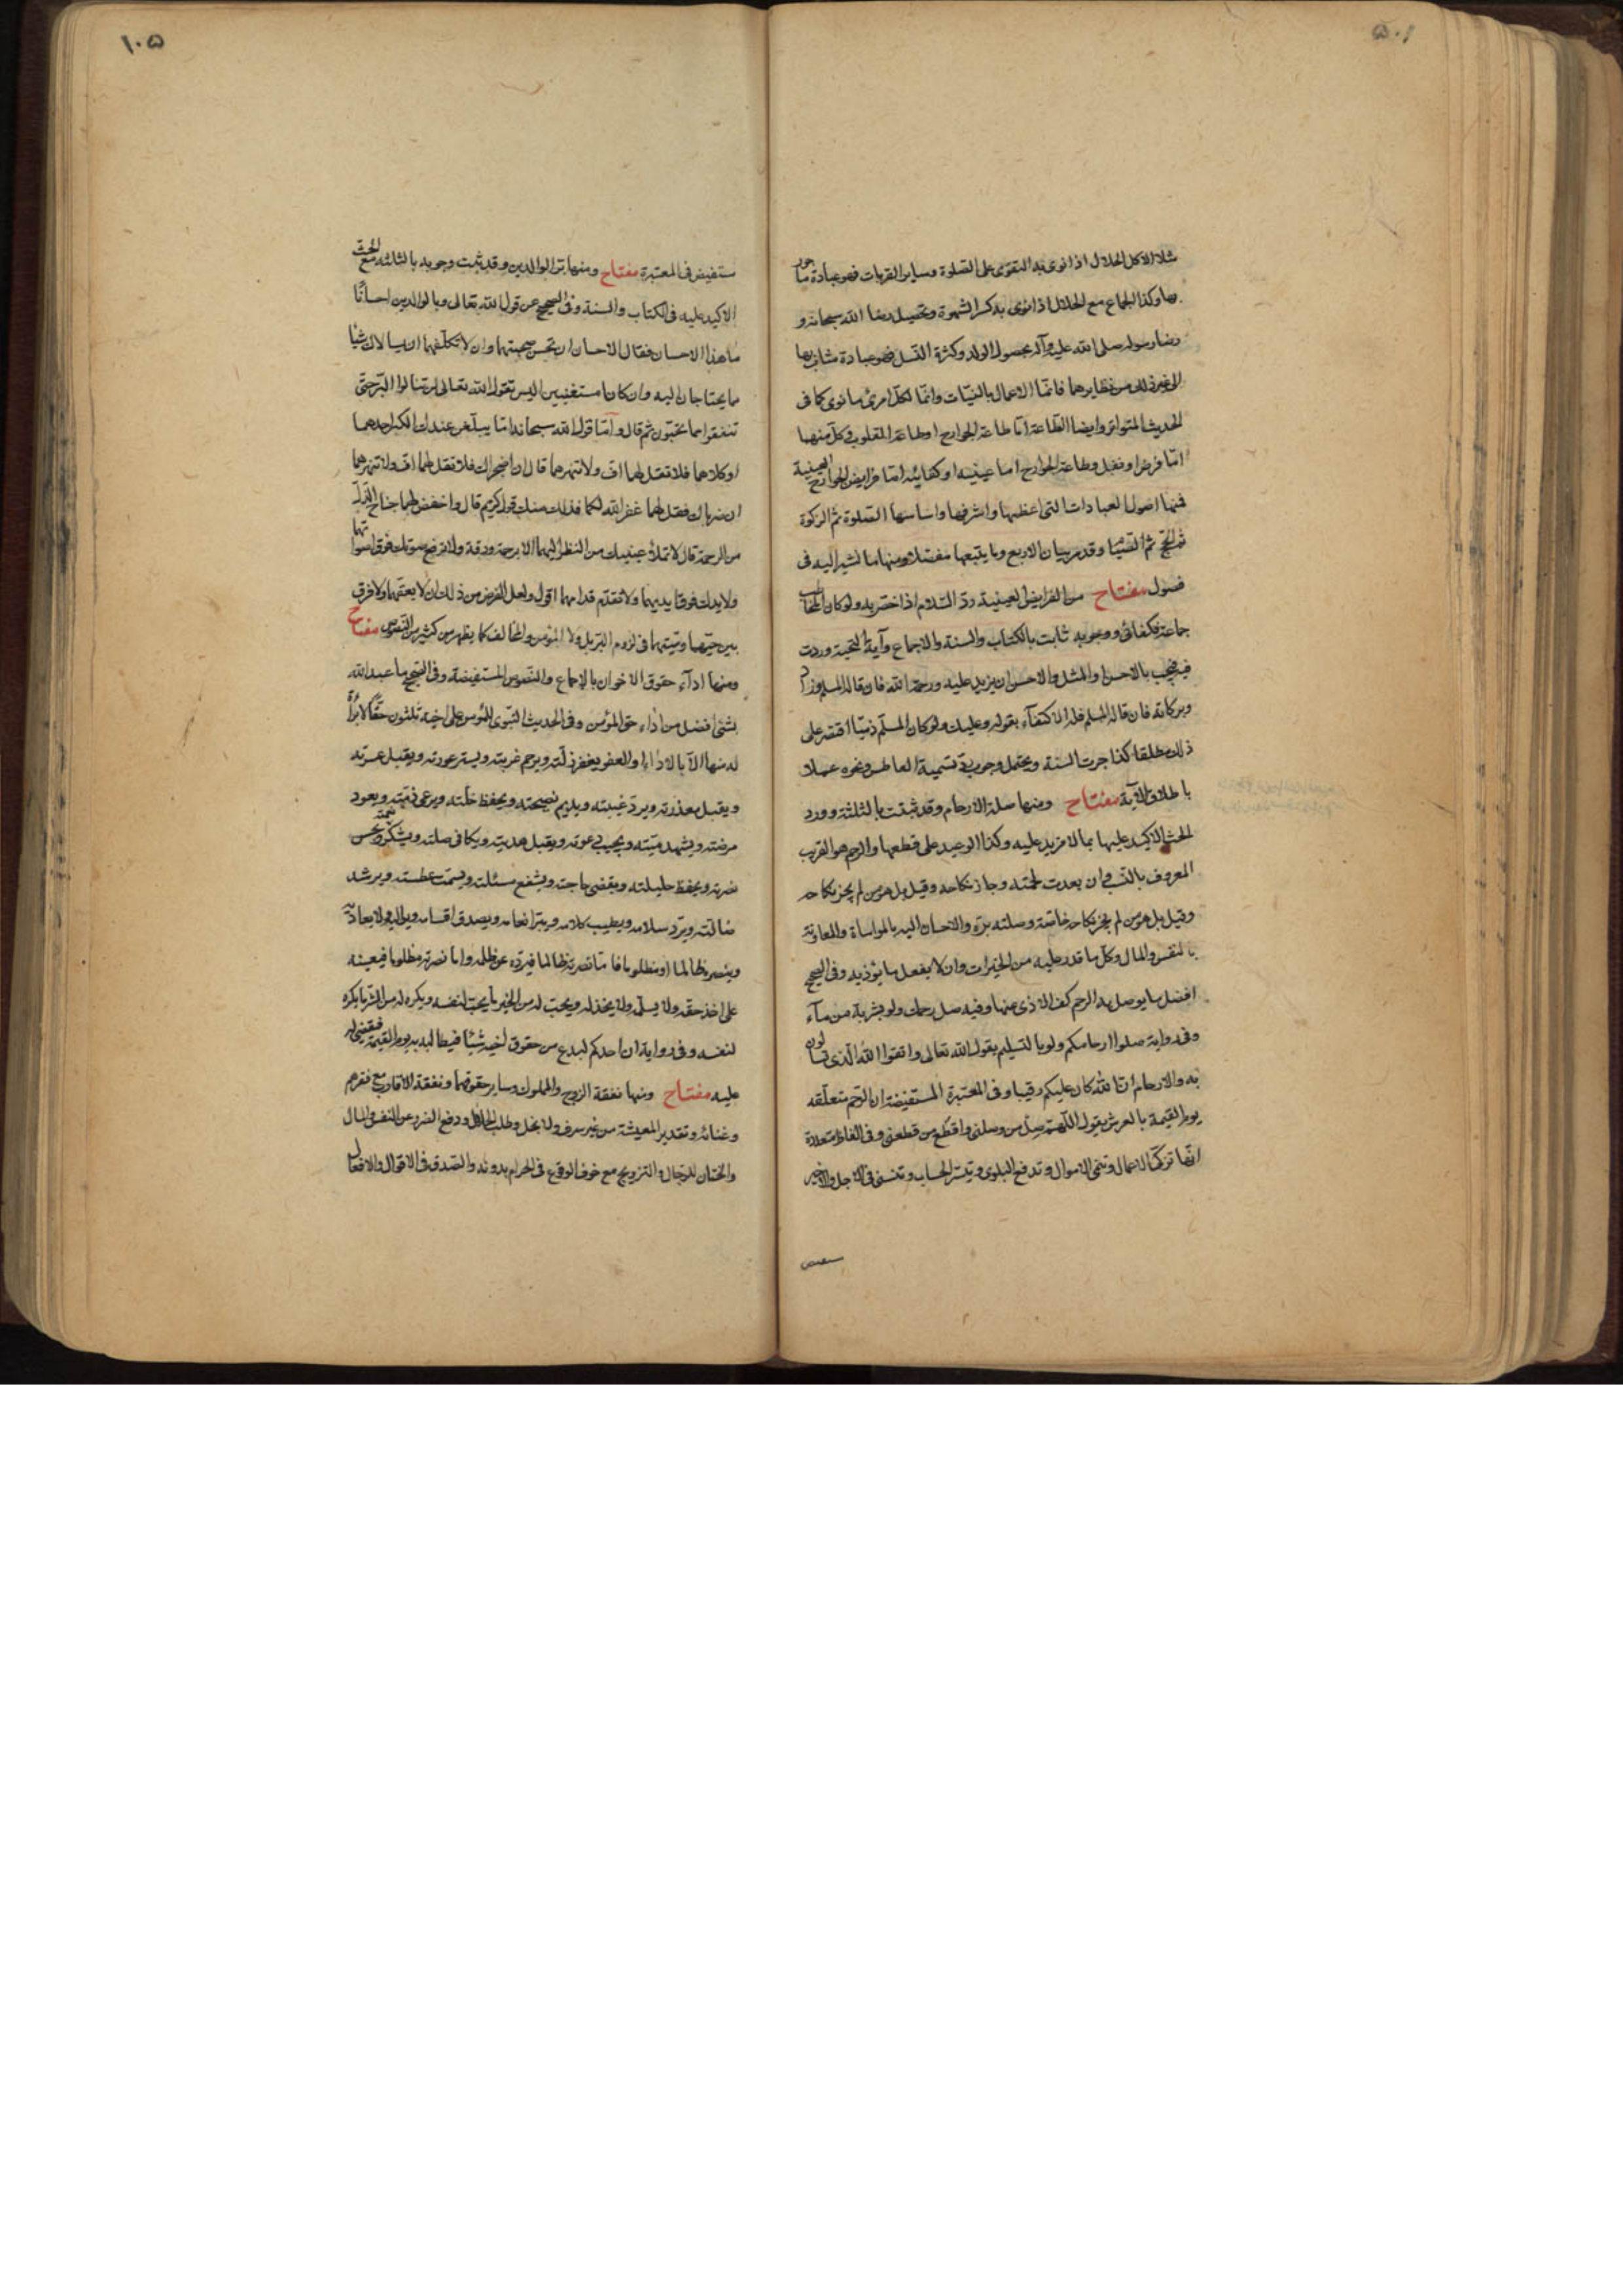 مثلا الاكل الحلال اذا نوى به التقوى على الصلوة وساير القربات فهو عبادة ماجور
بها وكذا الجماع مع الحلال اذا نوى به كسر الشهوة وتحصيل رضا الله سبحانه و
رضا رسوله صلى الله عليه وآله بحصول الولد وكثرة النسل فهو عبادة مثاب بها
الى غير ذلك من نظايرهما فانما الاعمال بالنيات وانما لكل امرئ ما نوى كما فى
الحديث المتواتر وايضا الطاعة اما طاعة الجوارح او طاعة القلوب وكل منهما
اما فرض او نفل وطاعة الجوارح اما عينية او كفائية اما فرايض الجوارح العينية
فمنها اصول العبادات التى اعظمها واشرفها واساسها الصلوة ثم الزكوة
ثم الحج ثم الصيام وقد مر بيان الاربع وما يتبعها مفصلا ومنها ما نشير اليه فى
فصول مفتاح من الفرايض العينية رد السلام اذا خص به ولو كان المخاطب
جماعة فكفائى ووجوبه ثابت بالكتاب والسنة والاجماع وآية التحية وردت
فيه فيجب بالاحسن او المثل والاحسن ان يزيد عليه ورحمة الله فان قاله المسلم زاد
وبركاته فان قاله المسلم فله الاكتفاء بقوله وعليك ولو كان المسلم ذميا اقتصر على
ذلك مطلقا كذا جرت السنة ويحتمل وجوب رد تسمية العاطس ونحوه عملا
باطلاق الآية مفتاح ومنها صلة الارحام وقد ثبتت بالثلثة وورد
الحث الاكيد عليها بما لا مزيد عليه وكذا الوعيد على قطعها والرحم هو القريب
المعروف بالنسب وان بعدت لحمته وجاز نكاحه وقيل بل هو من لم يجز نكاحه
وقيل بل هو من لم يجز نكاحه خاصة وصلته بره والاحسان اليه بالمواساة والمعاونة
بالنفس والمال وكل ما قدر عليه من الخيرات وان لا يفعل ما يؤذيه وفى الصحيح
افضل ما يوصل به الرحم كف الاذى عنها وفيه صل رحمك ولو بشربة من ماء
وفى رواية صلوا ارحامكم ولو بالتسليم يقول الله تعالى واتقوا الله الذى تساءلون
به والارحام ان الله كان عليكم رقيبا وفى المعتبرة المستفيضة ان الرحم متعلقة
يوم القيمة بالعرش يقول اللهم صل من وصلنى واقطع من قطعنى وفى الفاظ متعددة
انها تزكى الاعمال وتنمى الاموال وتدفع البلوى وتيسر الحساب وتنسئ فى الاجل والاخير
مستفيض فى المعتبرة مفتاح ومنها بر الوالدين وقد ثبت وجوبه بالثلثة مع الحث
الاكيد عليه فى الكتاب والسنة وفى الصحيح عن قول الله تعالى وبالوالدين احسانا
ما هذا الاحسان فقال الاحسان ان تحسن صحبتهما وان لا تكلفهما ان يسالاك شيئا
مما يحتاجان اليه وان كانا مستغنيين اليس يقول الله تعالى لن تنالوا البر حتى
تنفقوا مما تحبون ثم قال واما قول الله سبحانه اما يبلغن عندك الكبر احدهما
او كلاهما فلا تقل لهما اف ولا تنهرهما قال ان اضجراك فلا تقل لهما اف ولا تنهرهما
ان ضرباك فقل لهما غفر الله لكما فذلك منك قول كريم قال واخفض لهما جناح الذل
من الرحمة قال لا تملأ عينيك من النظر اليهما الا برحمة ورقة ولا ترفع صوتك فوق اصواتهما
ولا يدك فوق ايديهما ولا تقدم قدامهما اقول ولعل الفرض من ذلك ان لا يعقهما ولا فرق
بين حيهما وميتهما فى لزوم البر بل ولا المؤمن والمخالف كما يظهر من كثير من النصوص مفتاح
ومنها اداء حقوق الاخوان بالاجماع والنصوص المستفيضة وفى الصحيح ما عبد الله
بشئ افضل من اداء حق المؤمن وفى الحديث النبوى للمؤمن على اخيه ثلثون حقا لا براءة
له منها الا بالاداء او العفو يغفر زلته ويرحم غربته ويستر عورته ويقبل عثرته
ويقبل معذرته ويرد غيبته ويديم نصيحته ويحفظ خلته ويرعى ذمته ويعود
مرضته ويشهد ميتته ويجيب دعوته ويقبل هديته ويكافى صلته ويشكر نعمته ويحسن
نصرته ويحفظ حليلته ويقضى حاجته ويشفع مسئلته ويسمت عطسته ويرشد
ضالته ويرد سلامه ويطيب كلامه ويبر انعامه ويصدق اقسامه ويواليه ولا يعاديه
وينصره ظالما او مظلوما فاما نصرته ظالما فيرده عن ظلمه واما نصرته مظلوما فيعينه
على اخذ حقه ولا يسلمه ولا يخذله ويحب له من الخير ما يحب لنفسه ويكره له من الشر ما يكره
لنفسه وفى رواية ان احدكم ليدع من حقوق اخيه شيئا فيطالبه به يوم القيمة فيقضى له
عليه مفتاح ومنها نفقة الزوج والمملوك وساير حقوقهما ونفقة الاقارب مع فقرهم
وغنائه وتقدير المعيشة من غير سرف ولا بخل وطلب الحلال ودفع الضرر عن النفس والمال
والختان للرجال والتزويج مع خوف الوقوع فى الحرام بدونه والصدق فى الاقوال والافعال
١٠٥